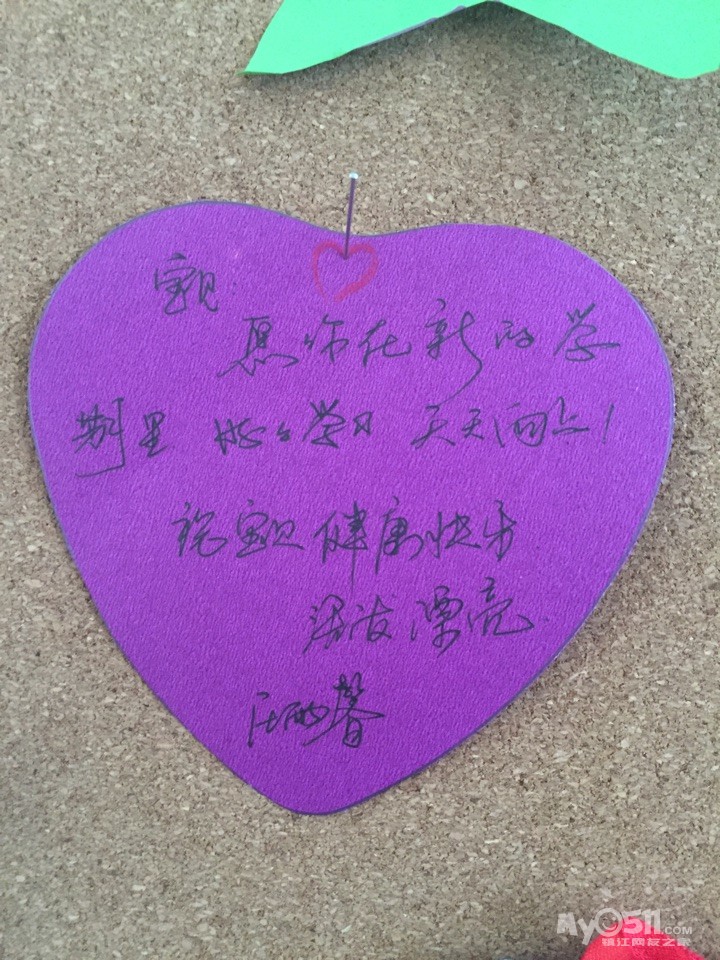 宝贝
愿你在新的学
期里 好好学习 天天向上!
祝宝贝健康快乐
活泼漂亮
馨
My0511.com
镇江网友之家